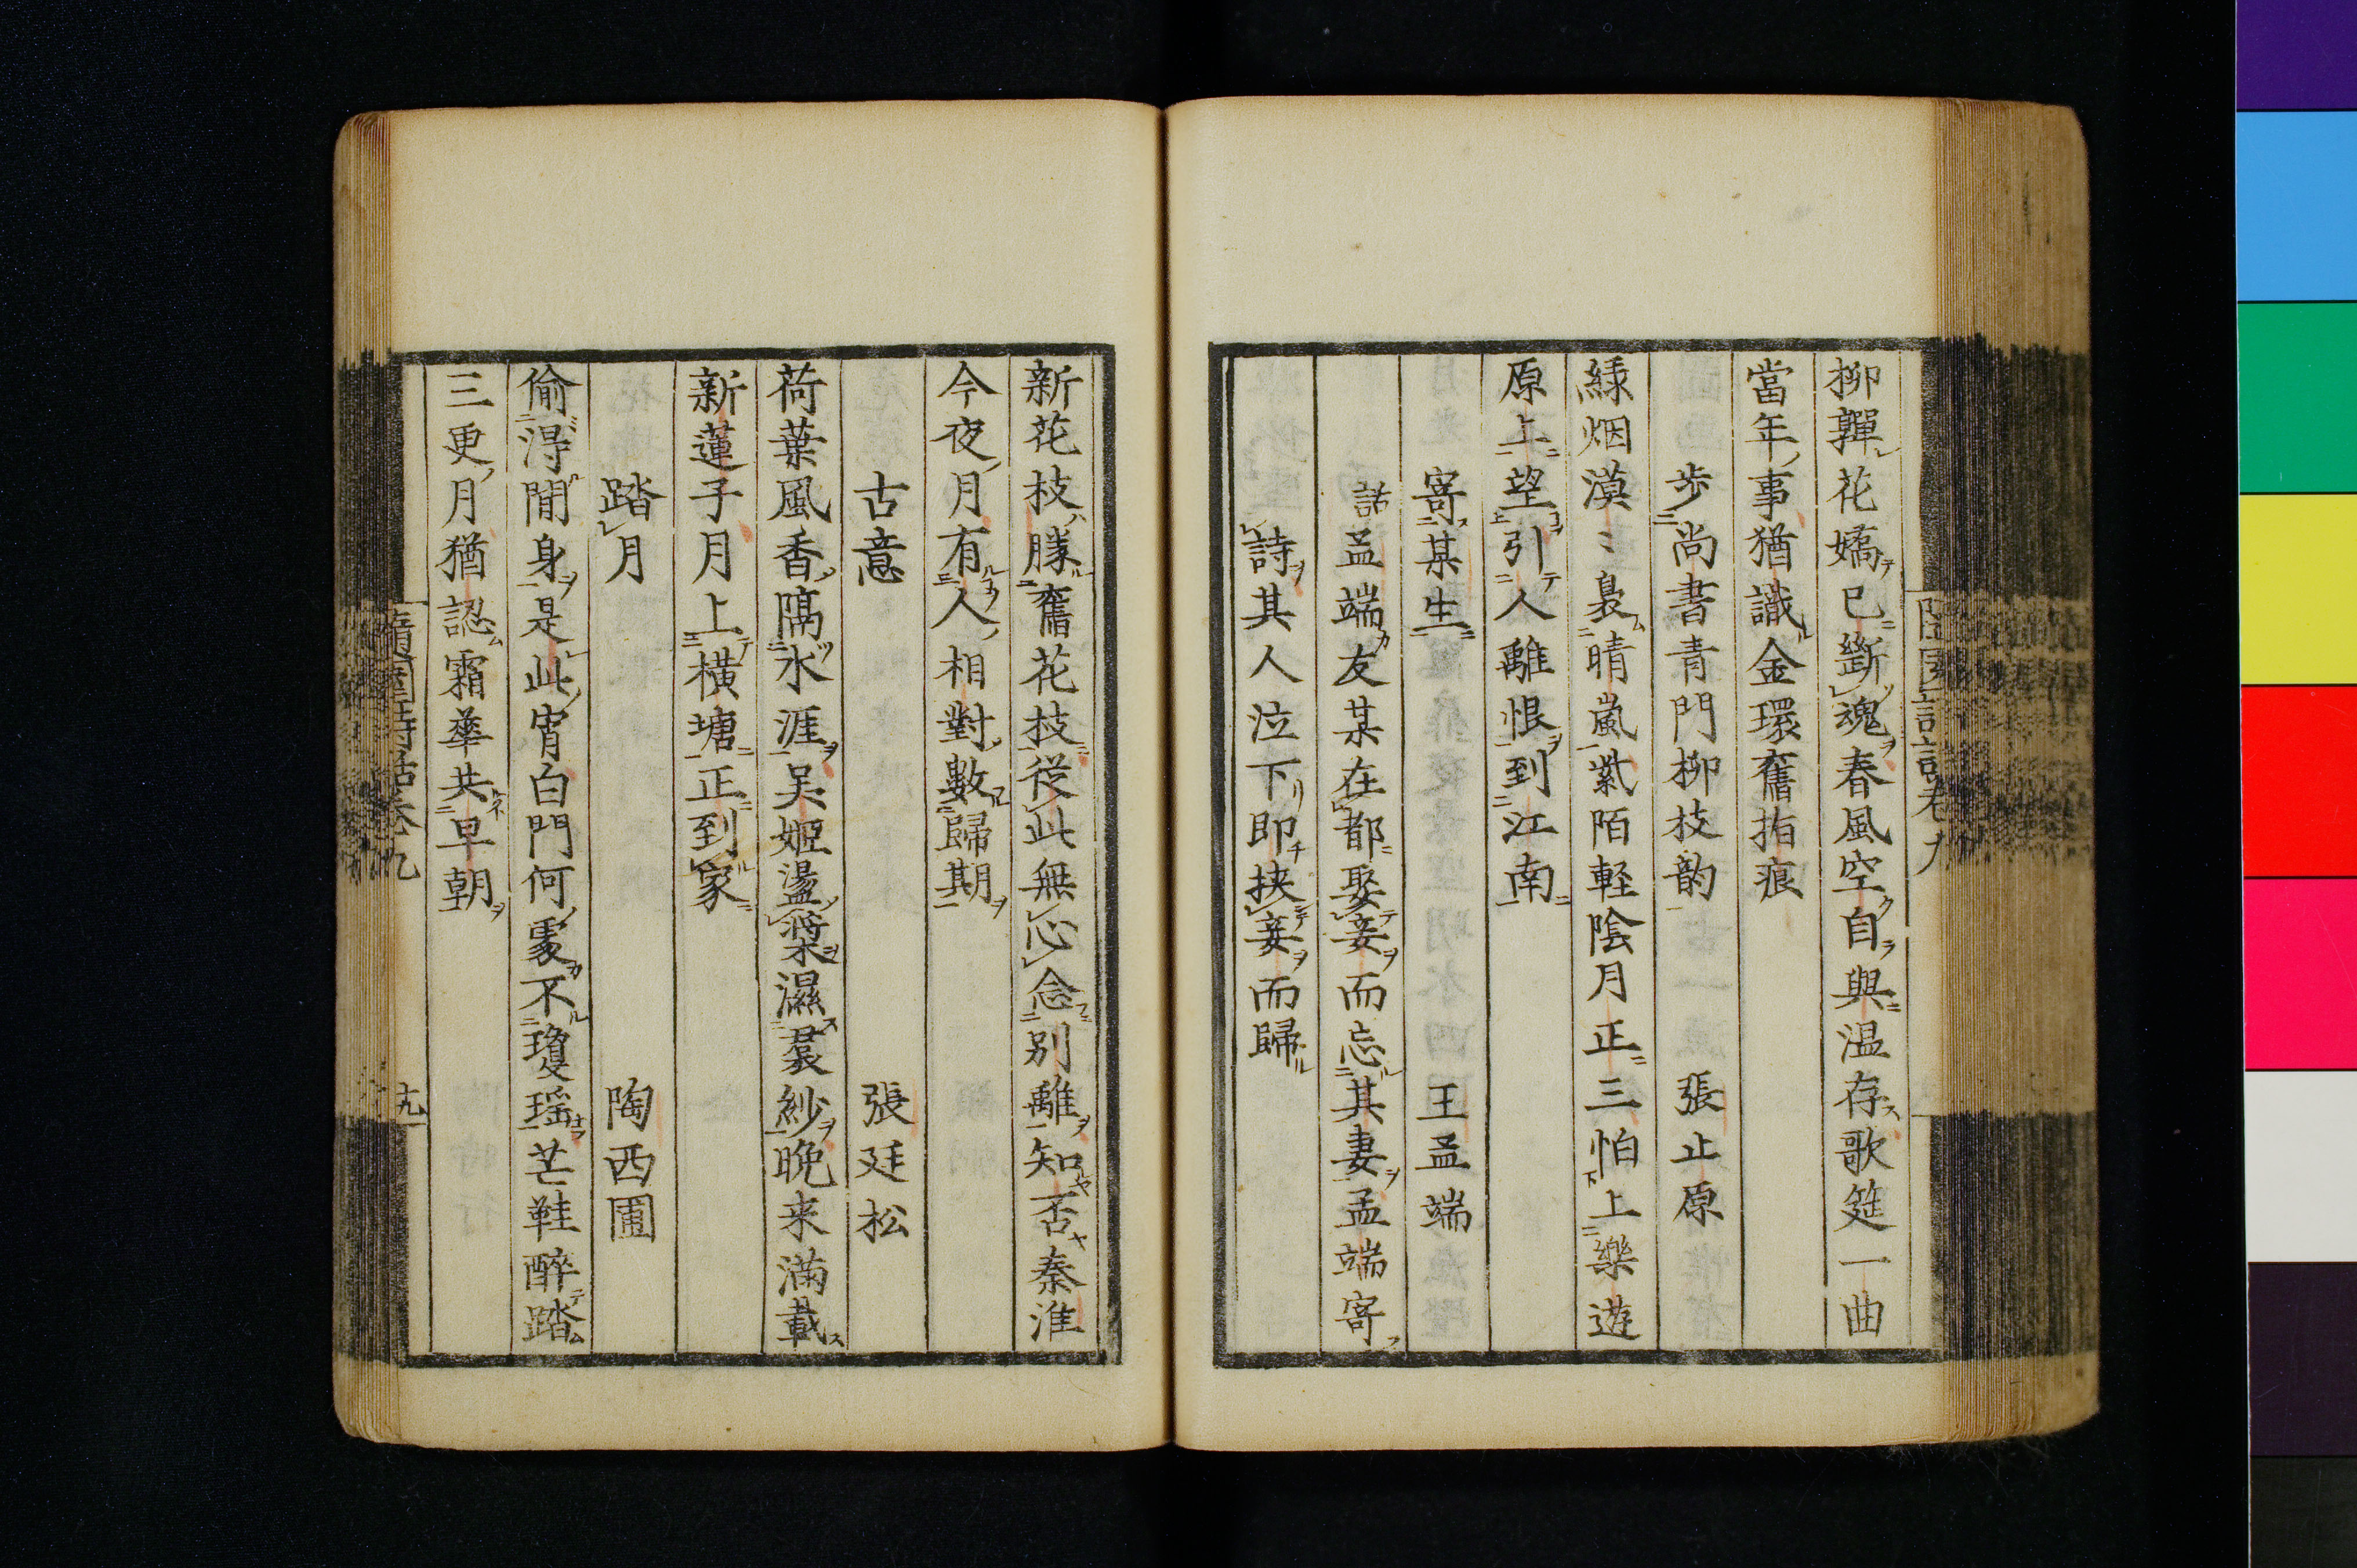 柳嚲花嬌已斷魂春風空自與温存歌筵一曲
當年事猶識金環舊指痕
步尚書青門柳枝韵 張止原
緑烟漠〻裊晴嵐紫陌軽陰月正三怕上樂遊
原上望引人離恨到江南
寄某生 王孟端
話 孟端友某在都娶妾而忘其妻孟端寄
詩其人泣下即挾妾而歸
新花枝勝舊花枝從此無心念别離知否秦淮
今夜月有人相對數歸期
古意 張廷松
荷葉風香隔水涯吴姬盪槳濕裙紗晩来満載
新蓮子月上橫塘正到家
踏月 陶西圃
偷淂閒身是此宵白門何處不瓊瑶芒鞋醉踏
三更月猶認霜華共早朝
隨園詩話卷九
十九